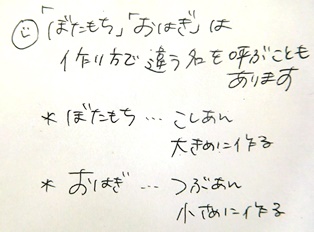 「ぼたもち」「おはぎ」は
作り方で違う名を呼ぶことも
あります
* ぼたもち … こしあん
大きめに作る
* おはぎ … つぶあん
小さめに作る